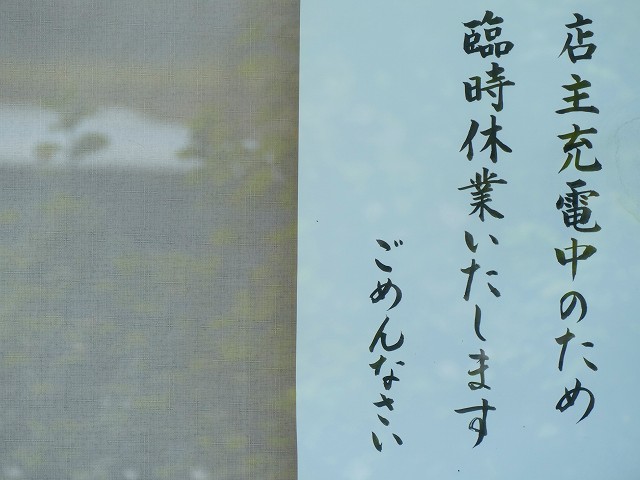 店主充電中のため
臨時休業いたします
ごめんなさい